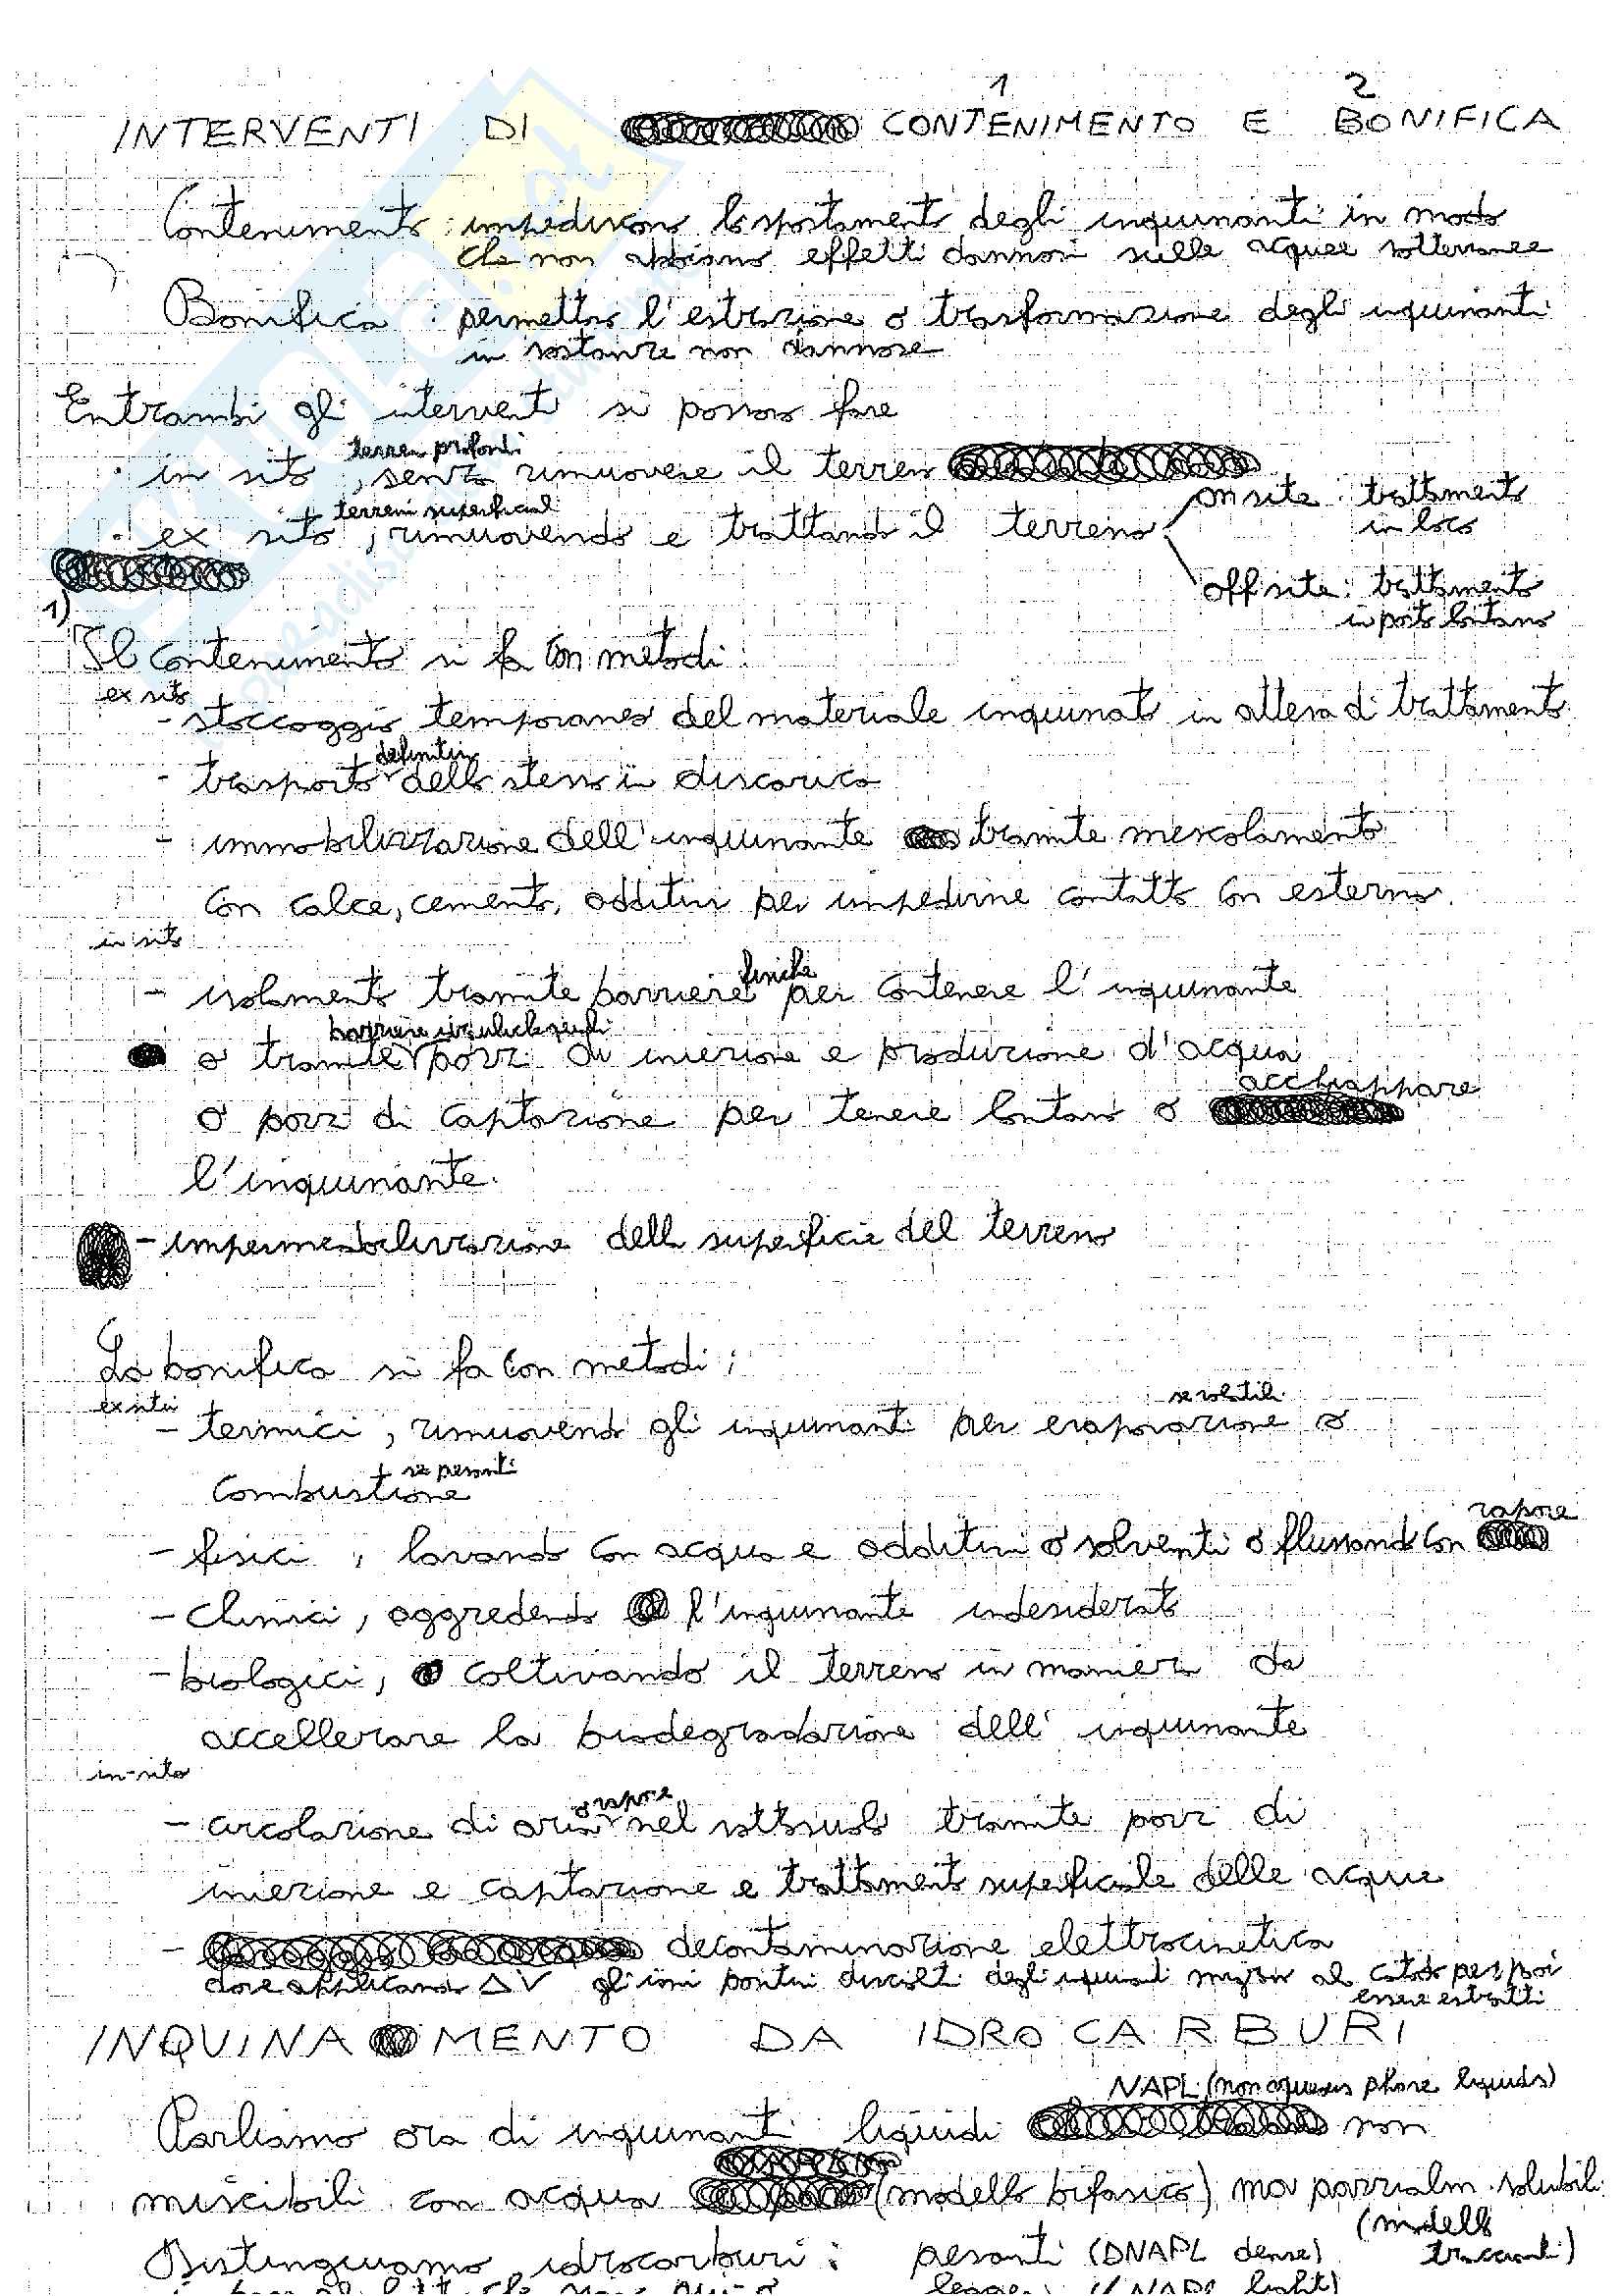 1 2
INTERVENTI DI CONTENIMENTO E BONIFICA
Contenimento : impediscono lo spostamento degli inquinanti in modo
che non abbiano effetti dannosi sulle acquee sotterranee
Bonifica : permettono l'estrazione o trasformazione degli inquinanti
in sostanze non dannose
Entrambi gli interventi si possono fare
terreni profondi
· in sito, senza rimuovere il terreno
onsite : trattamento
in loco
terreni superficiali
· ex sito, rimuovendo e trattando il terreno
offsite : trattamento
in posto lontano
1)
Il contenimento si fa con metodi :
ex sito
- stoccaggio temporaneo del materiale inquinato in attesa di trattamento
definitivo
- trasporto dello stesso in discarica
- immobilizzazione dell'inquinante tramite mescolamento
con calce, cemento, additivi per impedirne contatto con esterno.
in sito
fisiche
- isolamento tramite barriere per contenere l'inquinante
barriere idrauliche
o tramite pozzi di iniezione e produzione d'acqua
acchiappare
o pozzi di captazione per tenere lontano o
l'inquinante.
- impermeabilizzazione della superficie del terreno
La bonifica si fa con metodi :
ex situ
se volatili
- termici, rimuovendo gli inquinanti per evaporazione o
se pesanti
combustione
vapore
- fisici, lavando con acqua e additivi o solventi o flussando con
- chimici, aggredendo l'inquinante indesiderato
- biologici, coltivando il terreno in maniera da
accellerare la biodegradazione dell'inquinante
in-sito
o vapore
- circolazione di aria nel sottosuolo tramite pozzi di
iniezione e captazione e trattamento superficiale delle acque
- decontaminazione elettrocinetica
dove applicando ΔV gli ioni positivi disciolti degli inquinanti migrano al catodo per poi
essere estratti
INQUINAMENTO DA IDROCARBURI
NAPL (non aqueous phase liquids)
Parliamo ora di inquinanti liquidi non
miscibili con acqua (modello bifasico) ma parzialm. solubili
(modello
traccianti)
Distinguiamo idrocarburi : pesanti (DNAPL dense)
leggeri (LNAPL light)